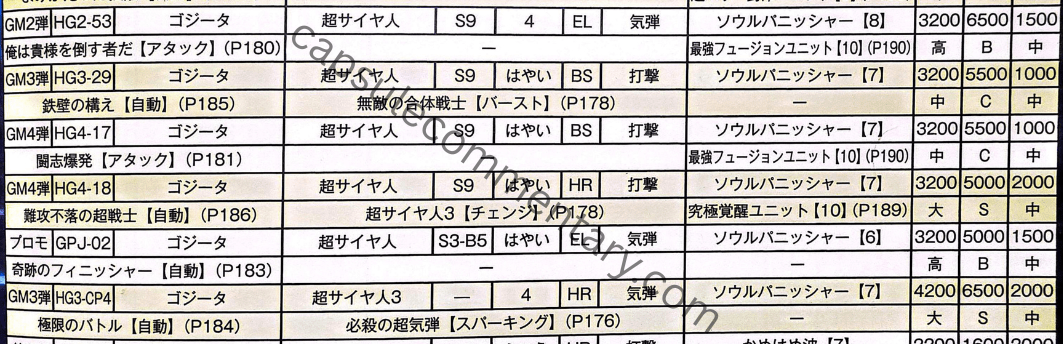 GM2弾 HG2-53 ゴジータ 超サイヤ人 S9 4 EL 気弾 ソウルパニッシャー【8】 3200 6500 1500
俺は貴様を倒す者だ【アタック】(P180) — 最強フュージョンユニット【10】(P190) 高 B 中
GM3弾 HG3-29 ゴジータ 超サイヤ人 S9 はやい BS 打撃 ソウルパニッシャー【7】 3200 5500 1000
鉄壁の構え【自動】(P185) 無敵の合体戦士【バースト】(P178) — 中 C 中
GM4弾 HG4-17 ゴジータ 超サイヤ人 S9 はやい BS 打撃 ソウルパニッシャー【7】 3200 5500 1000
闘志爆発【アタック】(P181) 最強フュージョンユニット【10】(P190) 中 C 中
GM4弾 HG4-18 ゴジータ 超サイヤ人 S9 はやい HR 打撃 ソウルパニッシャー【7】 3200 5000 2000
難攻不落の超戦士【自動】(P186) 超サイヤ人3【チェンジ】(P178) 究極覚醒ユニット【10】(P189) 大 S 中
プロモ GPJ-02 ゴジータ 超サイヤ人 S3-B5 はやい EL 気弾 ソウルパニッシャー【6】 3200 5000 1500
奇跡のフィニッシャー【自動】(P183) — — 高 B 中
GM3弾 HG3-CP4 ゴジータ 超サイヤ人3 — 4 HR 気弾 ソウルパニッシャー【7】 4200 6500 2000
極限のバトル【自動】(P184) 必殺の超気弾【スパーキング】(P176) — 大 S 中
capsulecommentary.com